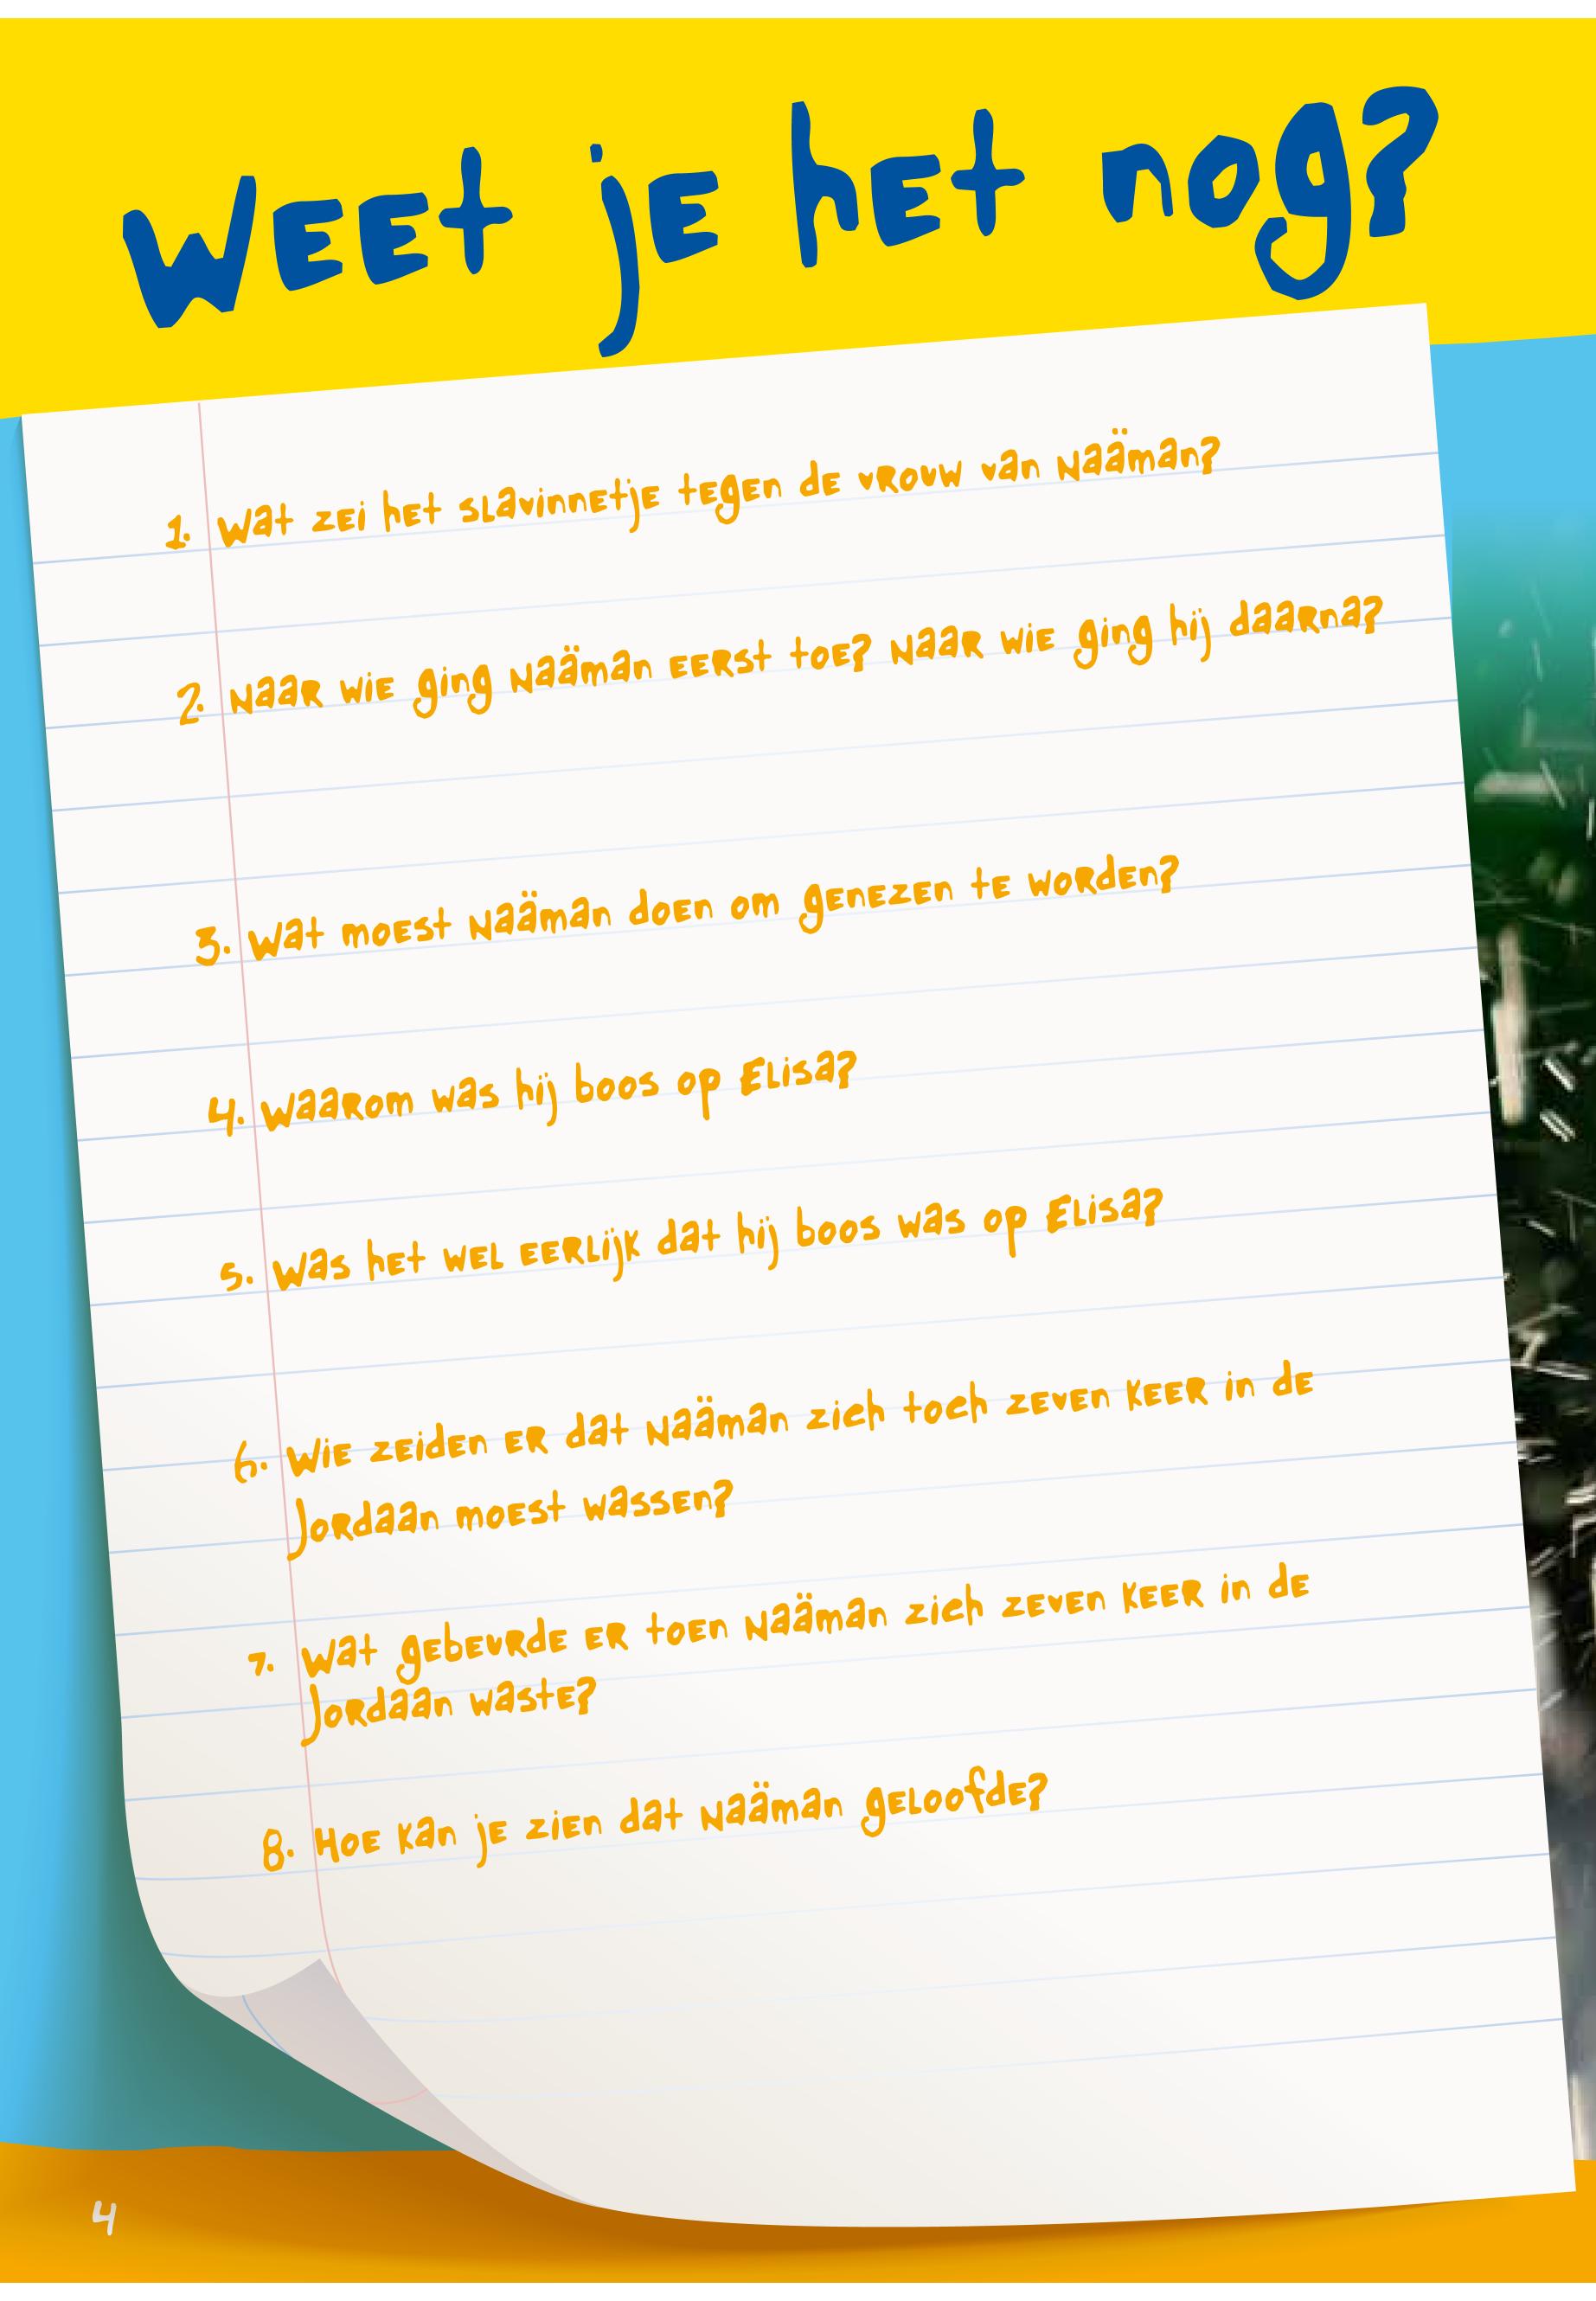 Weet je het nog?
1. Wat zei het slavinnetje tegen de vrouw van Naäman?
2. Naar wie ging Naäman eerst toe? Naar wie ging hij daarna?
3. Wat moest Naäman doen om genezen te worden?
4. Waarom was hij boos op Elisa?
5. Was het wel eerlijk dat hij boos was op Elisa?
6. Wie zeiden er dat Naäman zich toch zeven keer in de
Jordaan moest wassen?
7. Wat gebeurde er toen Naäman zich zeven keer in de
Jordaan waste?
8. Hoe kan je zien dat Naäman geloofde?
4